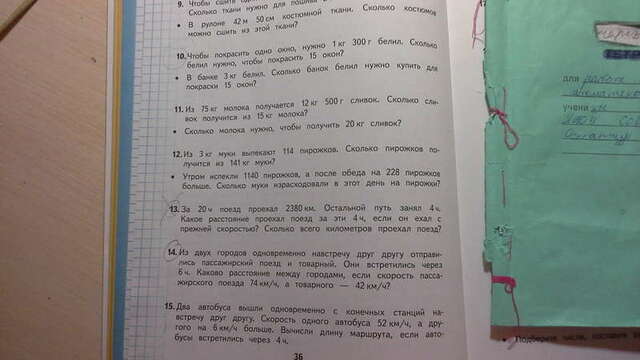 9. Чтобы сшить
Сколько ткани нужно для пошива
• В рулоне 42 м 50 см костюмной ткани. Сколько костюмов
можно сшить из этой ткани?
10. Чтобы покрасить одно окно, нужно 1 кг 300 г белил. Сколько
белил нужно, чтобы покрасить 15 окон?
• В банке 3 кг белил. Сколько банок белил нужно купить для
покраски 15 окон?
11. Из 75 кг молока получается 12 кг 500 г сливок. Сколько сли-
вок получится из 15 кг молока?
• Сколько молока нужно, чтобы получить 20 кг сливок?
12. Из 3 кг муки выпекают 114 пирожков. Сколько пирожков по-
лучится из 141 кг муки?
• Утром испекли 1140 пирожков, а после обеда на 228 пирожков
больше. Сколько муки израсходовали в этот день на пирожки?
13. За 20 ч поезд проехал 2380 км. Остальной путь занял 4 ч.
Какое расстояние проехал поезд за эти 4 ч, если он ехал с
прежней скоростью? Сколько всего километров проехал поезд?
14. Из двух городов одновременно навстречу друг другу отправи-
лись пассажирский поезд и товарный. Они встретились через
6 ч. Каково расстояние между городами, если скорость пасса-
жирского поезда 74 км/ч, а товарного — 42 км/ч?
15. Два автобуса вышли одновременно с конечных станций на-
встречу друг другу. Скорость одного автобуса 52 км/ч, а дру-
гого на 6 км/ч больше. Вычисли длину маршрута, если авто-
бусы встретились через 4 ч.
36
для работ
учени
• Подберите числа, поставьте